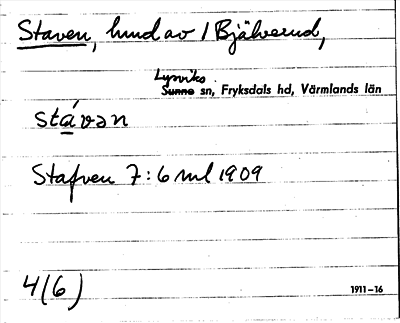 Staven, hund av / Bjälverud,
Lysviks
Sunne sn, Fryksdals hd, Värmlands län
stávən
Stafven 7:6 ml 1909
4(6)
1911-16